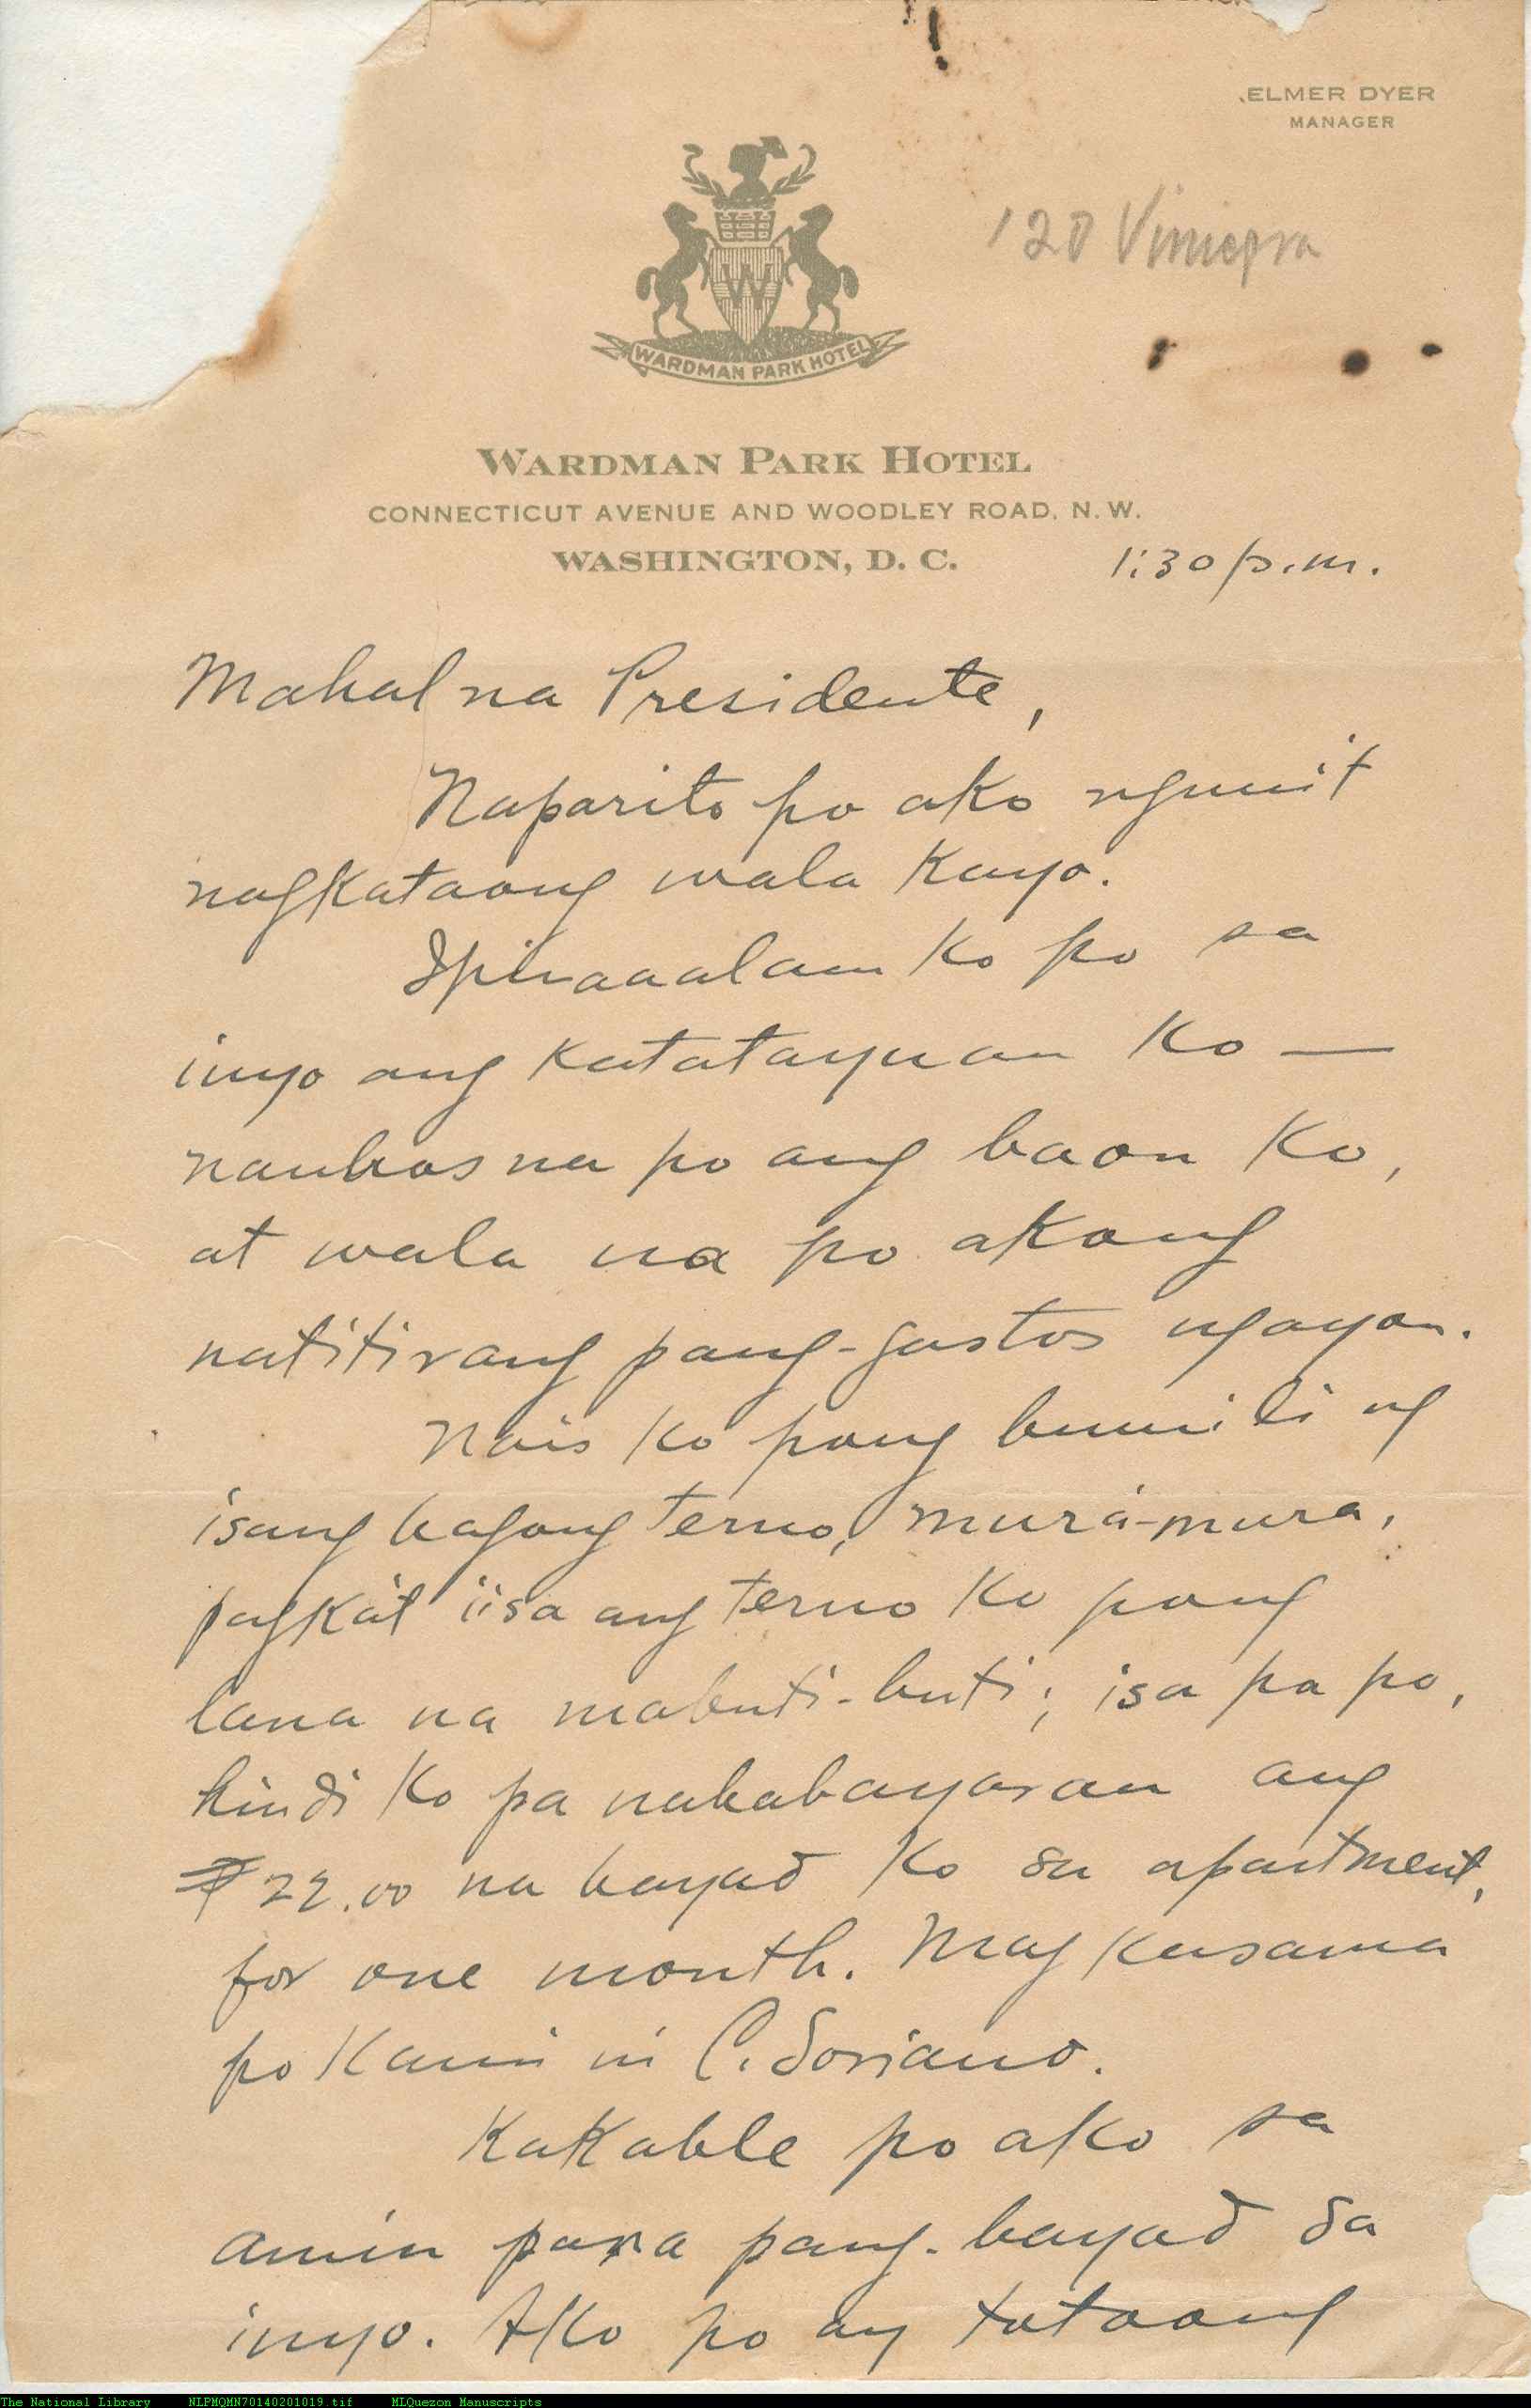 ELMER DYER
MANAGER
120
WARDMAN PARK HOTEL
WARDMAN PARK HOTEL
CONNECTICUT AVENUE AND WOODLEY ROAD, N. W.
WASHINGTON, D. C.
1:30 p.m.
Mahal na Presidente,
Naparito po ako nguni't
nagkataong wala kayo.
Ipinaaalam ko po sa
inyo ang katatayuan ko —
naubos na po ang baon ko,
at wala na po akong
natitirang pang-gastos ngayon.
Nais ko pong bumili ng
isang bagong terno, mura-mura,
pagka't iisa ang terno ko pong
lana na mabuti-buti; isa pa po,
hindi ko pa nababayaran ang
₱22.00 na bayad ko sa apartment,
for one month. Magkasama
po kami ni C. Soriano.
Kakable po ako sa
amin para pang-bayad sa
inyo. Ako po ay totoong
The National Library NLPMQMN70140201019.tif MLQuezon Manuscripts